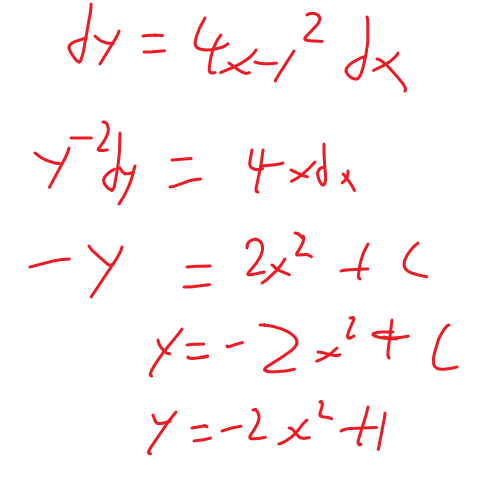 dy = 4xy² dx
y⁻²dy = 4xdx
-y = 2x² + C
y = -2x² + C
y = -2x² + 1